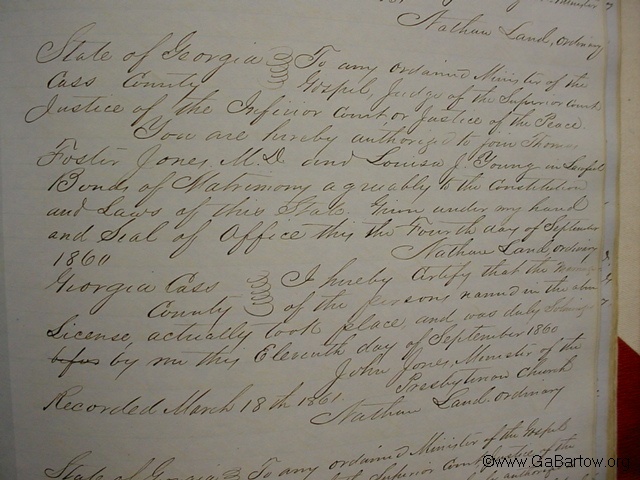 Minister
Nathan Land, ordinary
State of Georgia To any ordained Minister of the
Cass County Gospel, Judge of the Superior Court
Justice of the Inferior Court or Justice of the Peace.
You are hereby authorized to join Thomas
Foster Jones, M.D. and Louisa J. Young in Lawful
Bonds of Matrimony agreeably to the Constitution
and Laws of this State. Given under my hand
and Seal of Office this the Fourth day of September
1860 Nathan Land, ordinary
Georgia Cass I hereby Certify that the marriage
County of the persons named in the above
License, actually took place, and was duly
by me this Eleventh day of September 1860
John Jones, Minister of the
Presbyterian Church
Recorded March 18th 1861
Nathan Land. ordinary
State of Georgia To any ordained Minister of the Gospel
Superior Court, Justice of the
©www.GaBartow.org